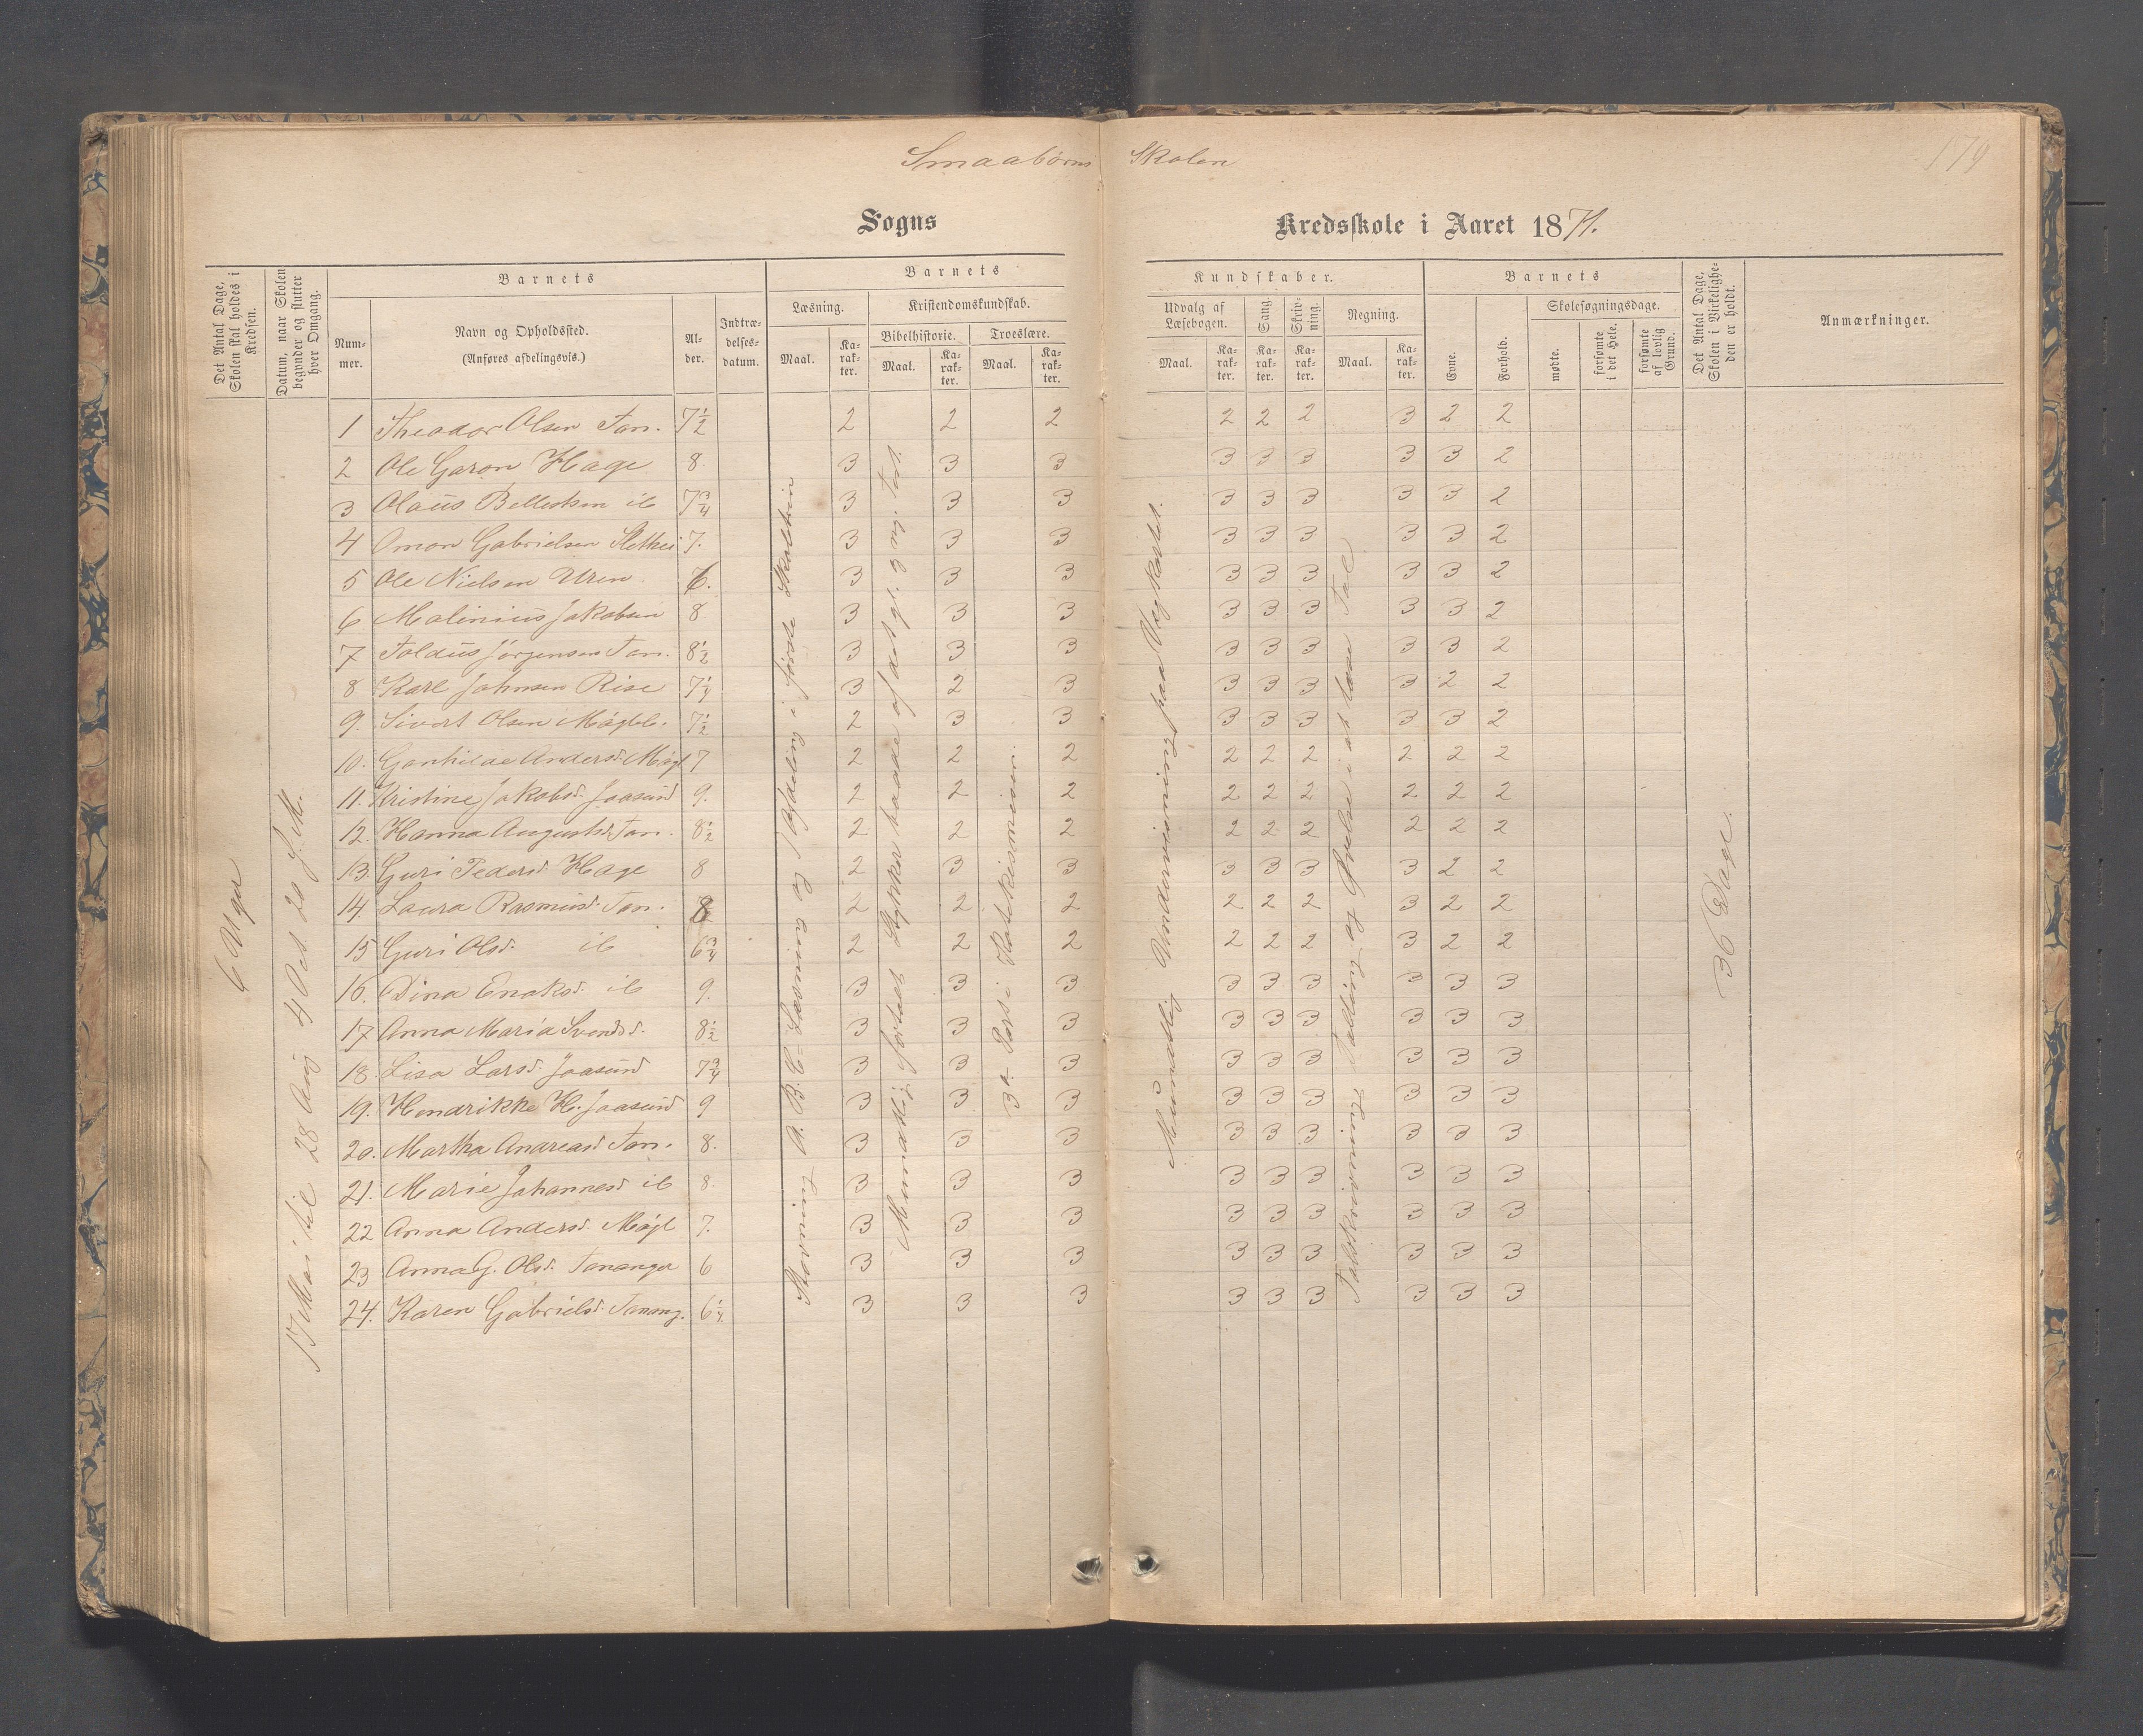 Smaabørns Skolen
179
Sogns Kredsskole i Aaret 1871.
Det Antal Dage, Skolen skal holdes i Kredsen.
Datum, naar Skolen begynder og slutter hver Omgang.
Barnets
Num-mer.
Navn og Opholdssted.
(Anføres afdelingsvis.)
Al-der.
Indtræ-delses-datum.
Barnets
Læsning.
Maal.
Ka-rak-ter.
Kristendomskundskab.
Bibelhistorie.
Maal.
Ka-rak-ter.
Troeslære.
Maal.
Ka-rak-ter.
Kundskaber.
Udvalg af Læsebogen.
Maal.
Ka-rak-ter.
Sang.
Ka-rak-ter.
Skriv-ning.
Ka-rak-ter.
Regning.
Maal.
Ka-rak-ter.
Barnets
Evne.
Forhold.
Skolesøgningsdage.
mødte.
forsømte i det Hele.
forsømte af lovlig Grund.
Det Antal Dage, Skolen i Virkelighe-den er holdt.
Anmærkninger.
6 Uger
17 Mai til 28 Aug 4 Oct 20
Stavning A.B.C. Læsning og Afdeling i første Skoletrin
Mundtlig fortalt Stykker baade af det gl. og ny. Test.
3die Part i Katekismusen.
Mundtlig Undervisning paa Vægkartet.
Talskrivning Tælling og Øvelse i at læse Tal
36 Dage.
1 Theodor Olsen Tan. 7½ 2 2 2 2 2 2 3 2 2
2 Ole Garon Hage 8 3 3 3 3 3 3 3 3 2
3 Olaus Bellesen ib 7¾ 3 3 3 3 3 3 3 3 2
4 Omon Gabrielsen 7. 3 3 3 3 3 3 3 3 2
5 Ole Nielsen Uren 7. 3 3 3 3 3 3 3 3 2
6 Malinius Jakobsen 8 3 3 3 3 3 3 3 3 2
7 Toldus Jørgensen Tan. 8½ 3 3 3 3 3 3 3 3 2
8 Karl Johnsen Rise 7¼ 3 2 3 3 3 3 3 2 2
9. Sivert Olsen Mågleb. 7½ 2 3 3 3 3 3 3 3 2
10. Gonhilde Andersd. Mågl 7 2 2 2 2 2 2 2 2 2
11. Kristine Jakobsd. Jaasund 9. 2 2 2 2 2 2 2 2 2
12. Hanna Augustsd. Tan. 8½ 2 2 2 2 2 2 2 2 2
13. Guri Pedersd. Hage 8 2 3 3 3 3 3 3 2 2
14. Laura Rasmusd. Tan. 8 2 2 2 2 2 2 3 2 2
15 Guri Olsd. ib 6¾ 2 2 2 2 2 2 3 2 2
16. Dina Enoksd. ib 9. 3 3 3 3 3 3 3 3 3
17 Anna Maria Svendsd. 8½ 3 3 3 3 3 3 3 3 3
18. Lisa Larsd. Jaasund 7¾ 3 3 3 3 3 3 3 3 3
19. Hendrikke H. Jaasund 9 3 3 3 3 3 3 3 3 3
20. Martha Andreasd Tan. 8. 3 3 3 3 3 3 3 3 3
21. Marie Johannesd ib 8. 3 3 3 3 3 3 3 3 3
22 Anna Andersd. Mågl 7. 3 3 3 3 3 3 3 3 3
23 Anna G. Olsd. Tananger 6 3 3 3 3 3 3 3 3 3
24. Karen Gabrielsd. Tanang. 6¼ 3 3 3 3 3 3 3 3 3